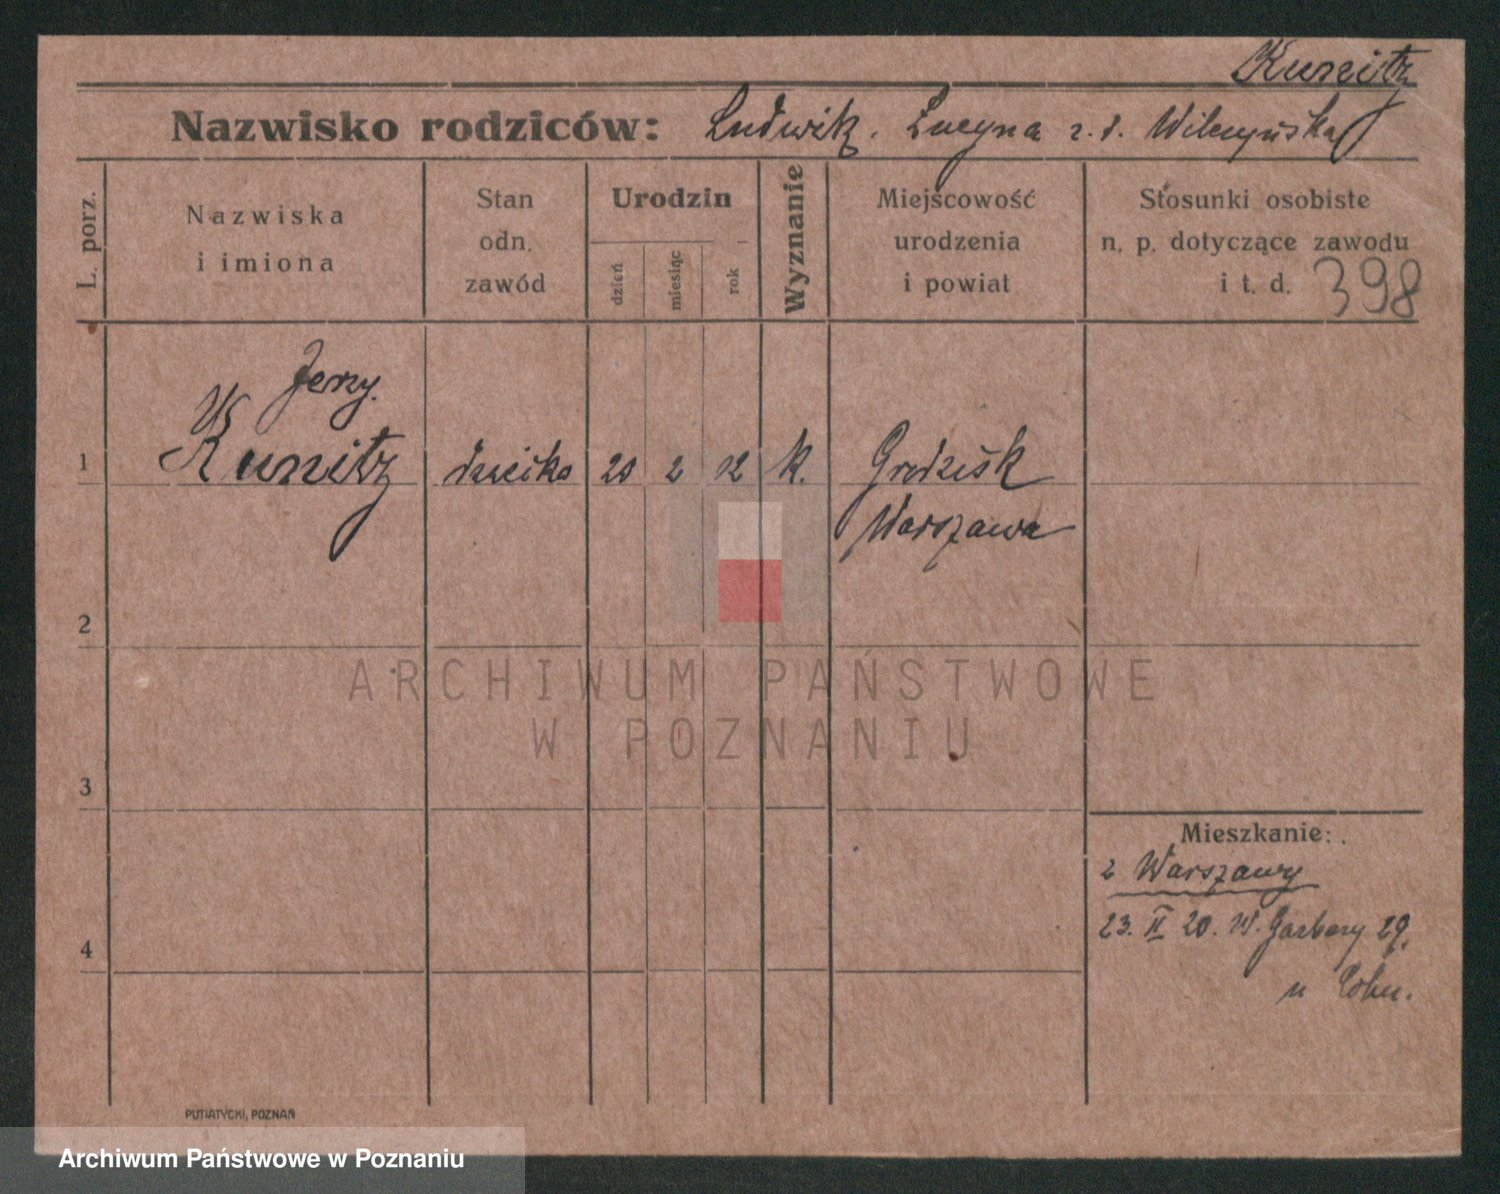 Kunitz
Nazwisko rodziców: Ludwik. Lucyna z. d. Wilczyńska
L. porz.
Nazwiska
i imiona
Stan
odn.
zawód
Urodzin
dzień
miesiąc
rok
Wyznanie
Miejscowość
urodzenia
i powiat
Stosunki osobiste
n. p. dotyczące zawodu
i t. d.
398
Jerzy.
1 Kunitz dziecko 20 2 12 k. Grodzisk
Warszawa
2
ARCHIWUM PAŃSTWOWE
W POZNANIU
3
Mieszkanie:
z Warszawy
23. II 20. W. Garbary 29.
4
u
PUTIATYCKI, POZNAŃ
Archiwum Państwowe w Poznaniu